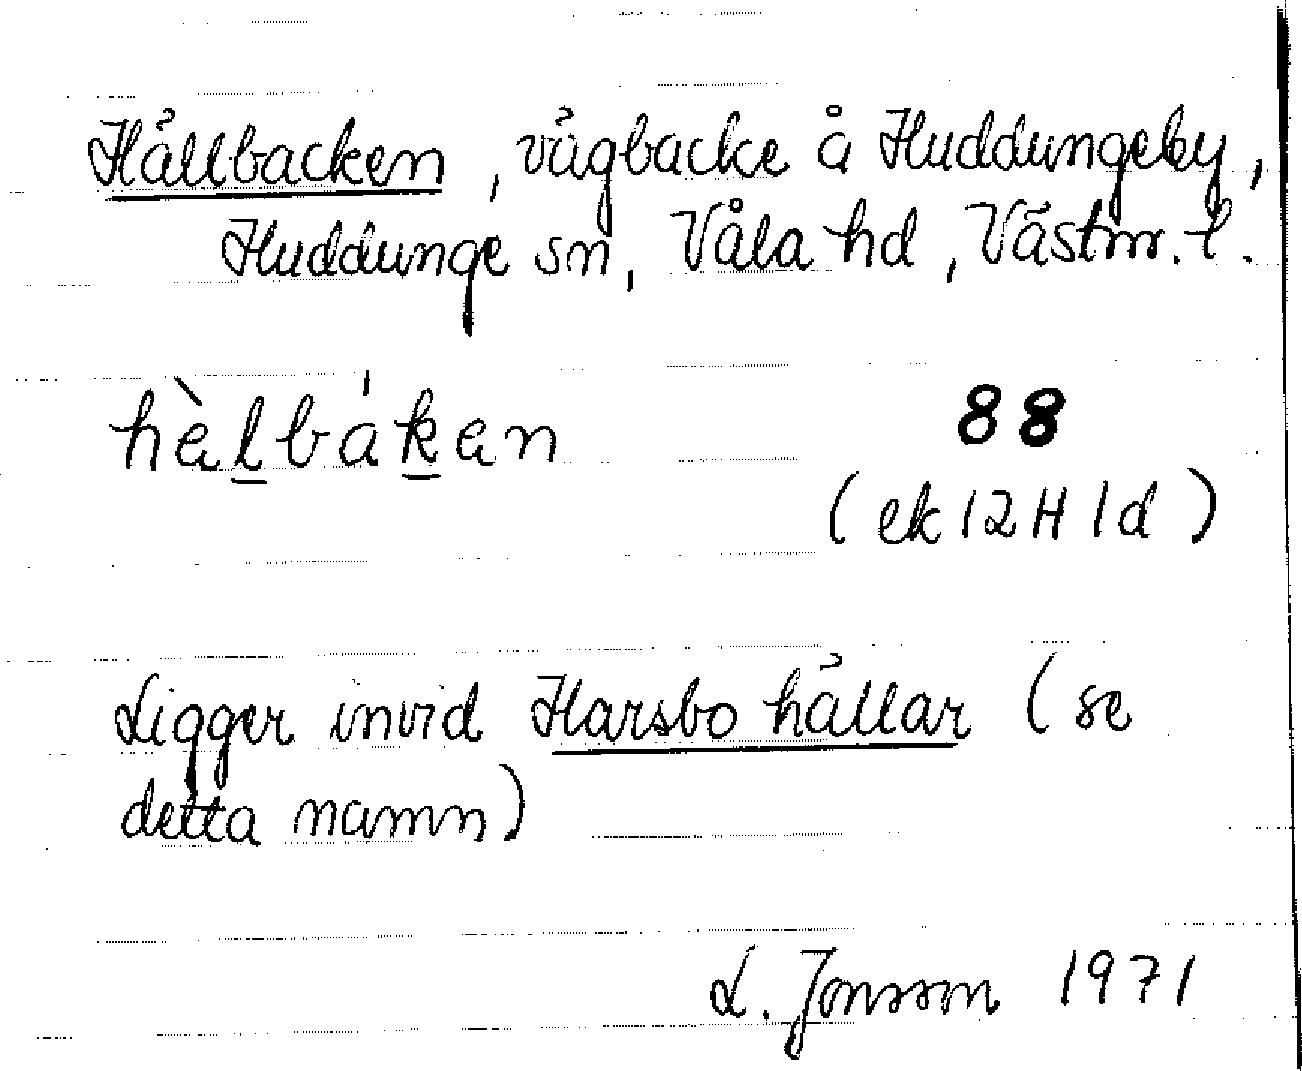 Hällbacken, vägbacke å Huddungeby,
Huddunge sn, Våla hd, Västm. l.
hȁlbákan
88
(ek 12H 1d)
Ligger invid Harsbo hällar (se
detta namn)
L. Jonsson 1971